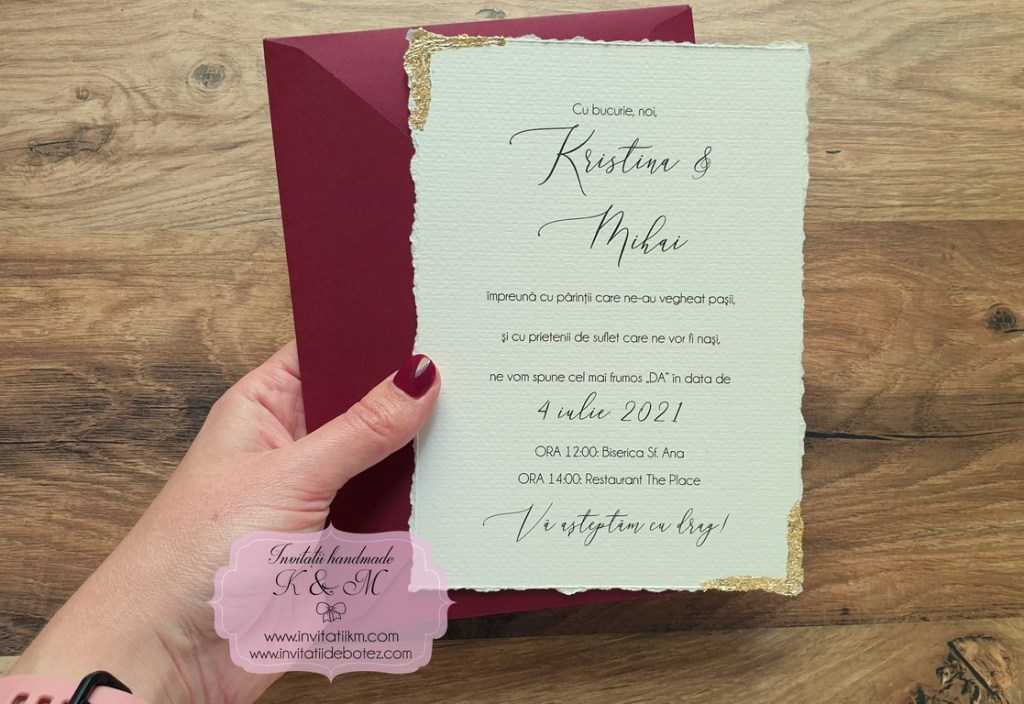 Cu bucurie, noi,
Kristina &
Mihai
împreună cu părinții care ne-au vegheat pașii,
și cu prietenii de suflet care ne vor fi nași,
ne vom spune cel mai frumos „DA” în data de
4 iulie 2021
ORA 12:00: Biserica Sf. Ana
ORA 14:00: Restaurant The Place
Vă așteptăm cu drag!
Invitații handmade
K & M
www.invitatiikm.com
www.invitatiidebotez.com